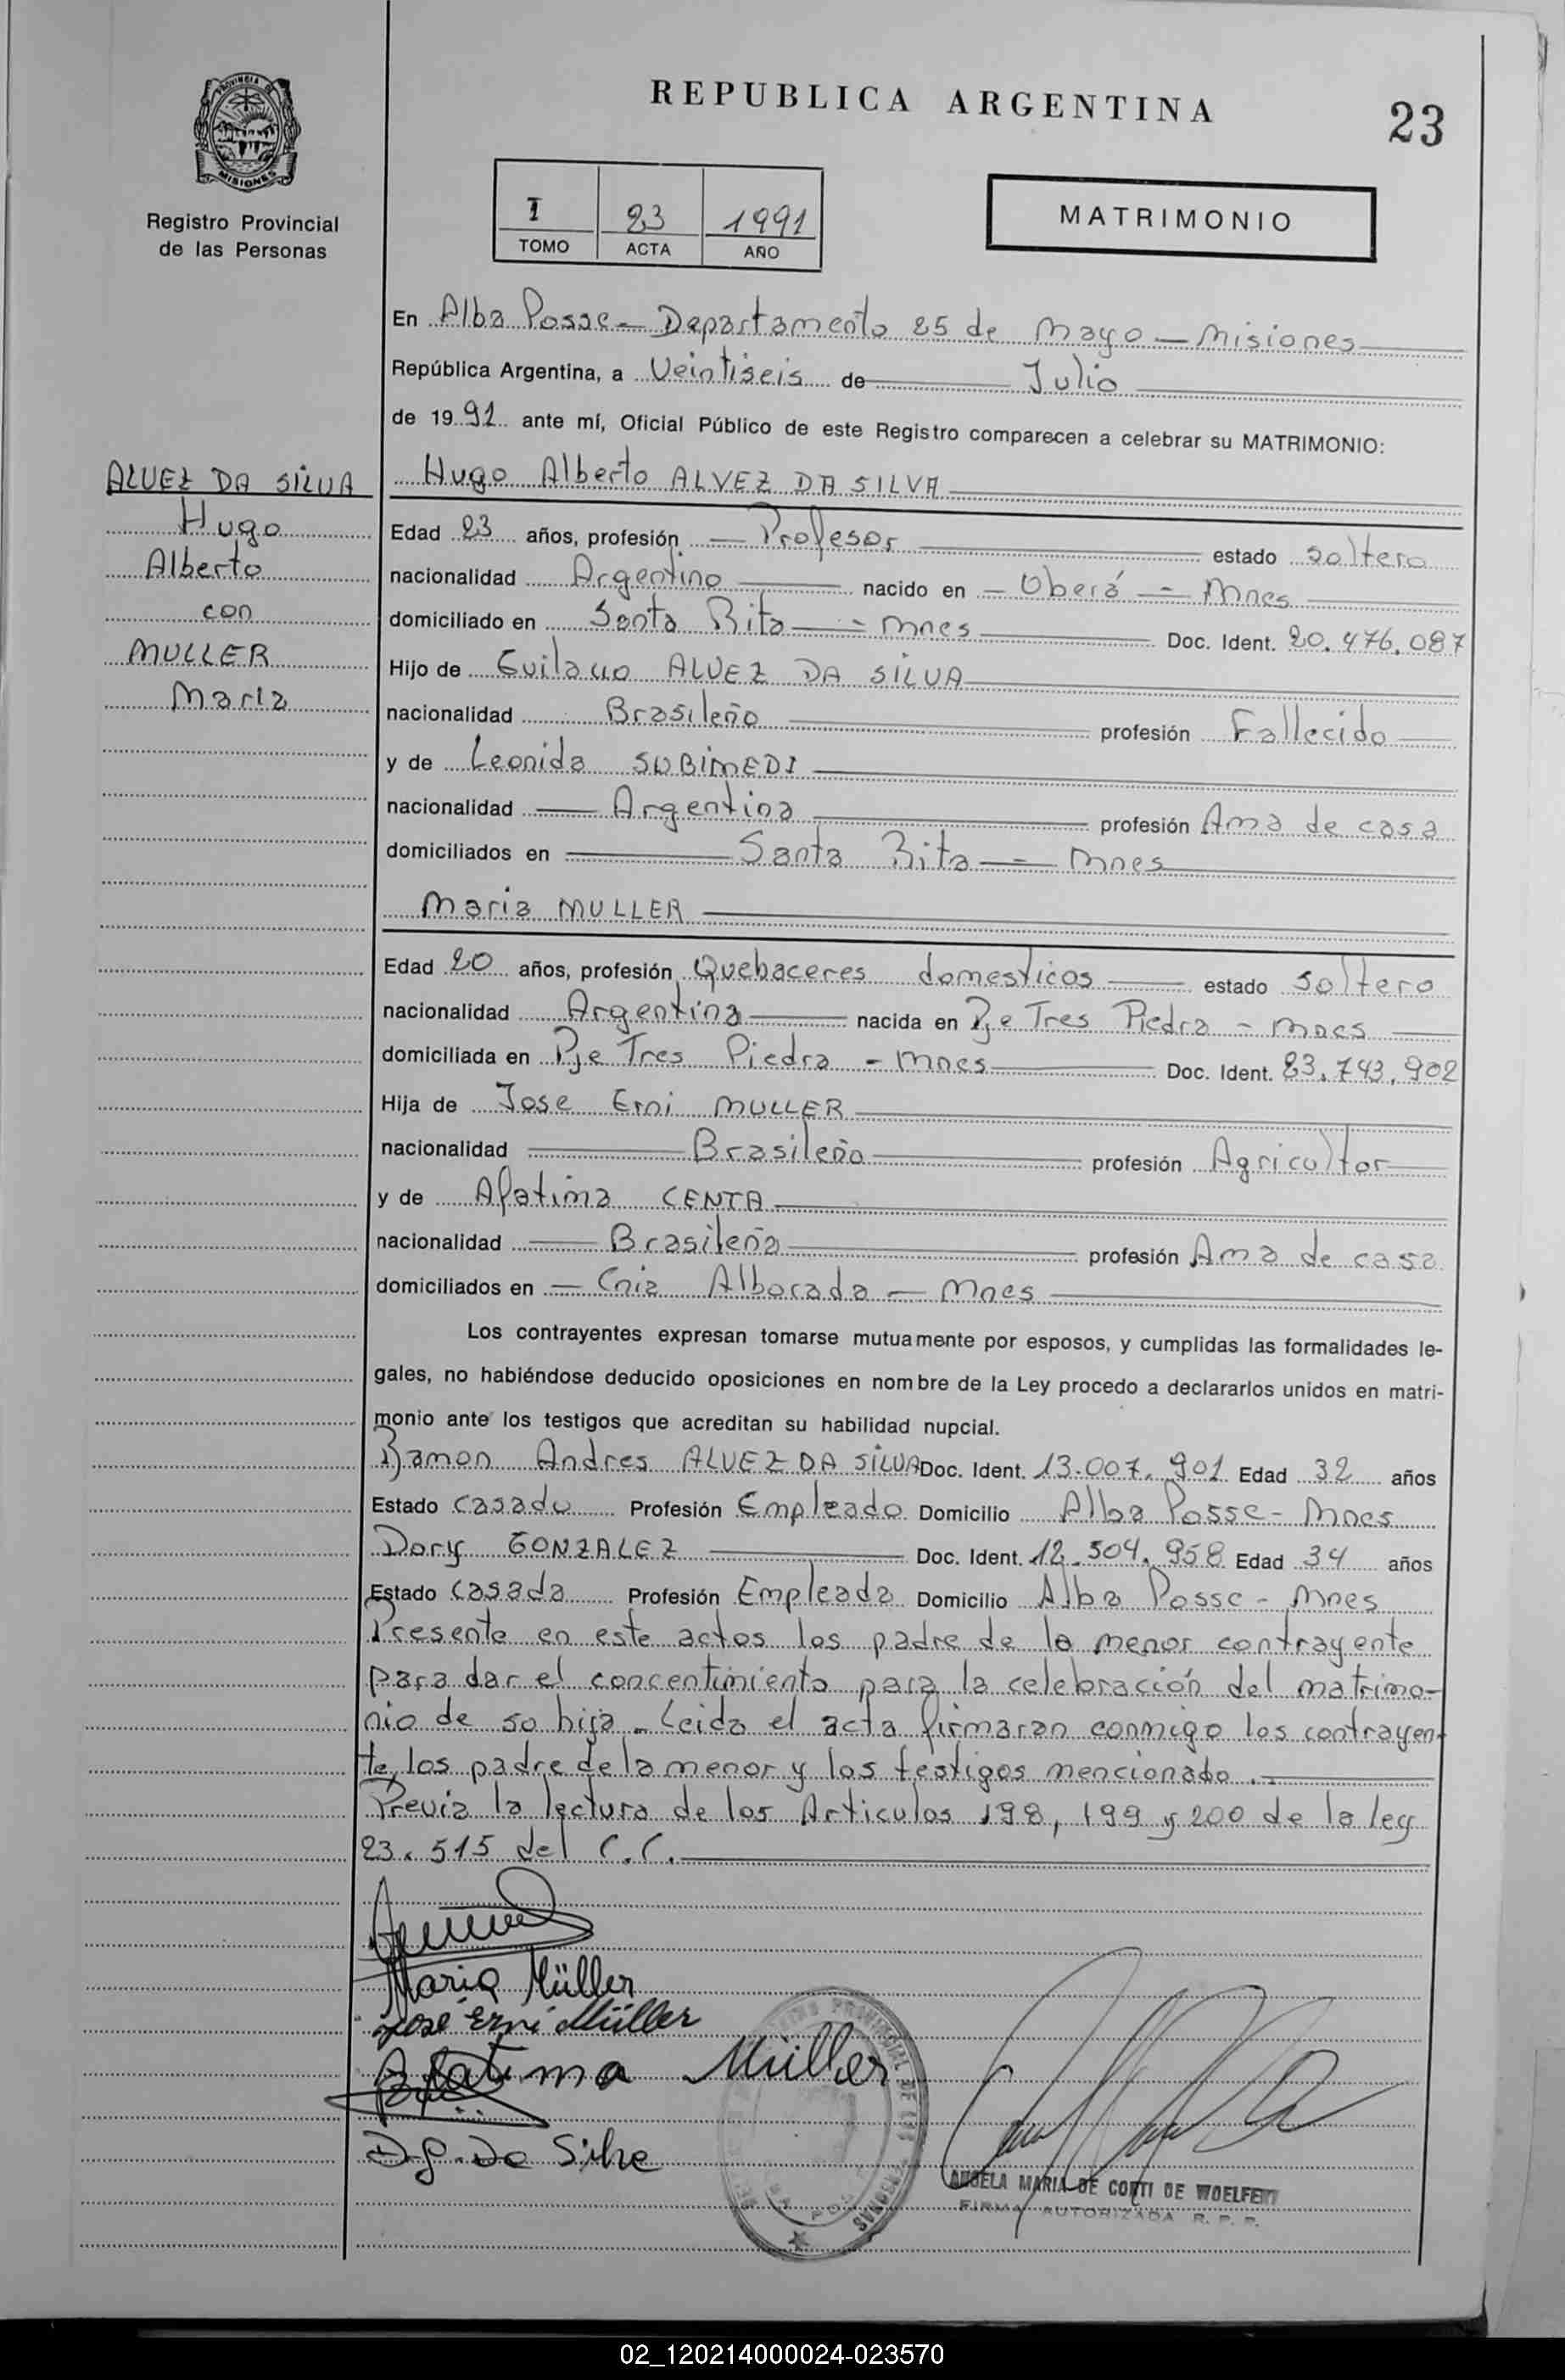 REPUBLICA ARGENTINA
23
PROVINCIA DE
MISIONES
Registro Provincial
de las Personas
I 23 1991
TOMO ACTA AÑO
MATRIMONIO
En Alba Posse - Departamento 25 de Mayo - Misiones
República Argentina, a Veintiseis de Julio
de 1991 ante mí, Oficial Público de este Registro comparecen a celebrar su MATRIMONIO:
ALVEZ DA SILVA
Hugo
Alberto
con
MULLER
Maria
Hugo Alberto ALVEZ DA SILVA
Edad 23 años, profesión - Profesor estado soltero
nacionalidad Argentino nacido en - Oberá - Mnes
domiciliado en Santa Rita - Mnes Doc. Ident. 20.476.087
Hijo de ALVEZ DA SILVA
nacionalidad Brasileño profesión Fallecido
y de Leonida SUBIMEDI
nacionalidad Argentina profesión Ama de casa
domiciliados en Santa Rita - Mnes
Maria MULLER
Edad 20 años, profesión Quehaceres domesticos estado soltero
nacionalidad Argentina nacida en Pje Tres Piedra - Mnes
domiciliada en Pje Tres Piedra - Mnes Doc. Ident. 23.743.902
Hija de Jose Erni MULLER
nacionalidad Brasileño profesión Agricultor
y de Afatima CENTA
nacionalidad Brasileña profesión Ama de casa
domiciliados en - Cnia Alborada - Mnes
Los contrayentes expresan tomarse mutuamente por esposos, y cumplidas las formalidades le-
gales, no habiéndose deducido oposiciones en nombre de la Ley procedo a declararlos unidos en matri-
monio ante los testigos que acreditan su habilidad nupcial.
Ramon Andres ALVEZ DA SILVA Doc. Ident. 13.007.901 Edad 32 años
Estado casado Profesión Empleado Domicilio Alba Posse - Mnes
Dory GONZALEZ Doc. Ident. 12.504.958 Edad 34 años
Estado casada Profesión Empleada Domicilio Alba Posse - Mnes
Presente en este actos los padre de la menor contrayente
para dar el concentimiento para la celebración del matrimo-
nio de su hija - Leida el acta firmaran conmigo los contrayen-
te, los padre de la menor y los testigos mencionado.
Previa la lectura de los Articulos 198, 199 y 200 de la ley
23.515 del C.C.
Maria Müller
José Erni Müller
Afatima Müller
ANGELA MARIA DE CORTI DE WOELFERT
FIRMA AUTORIZADA R. P. P.
02_120214000024-023570